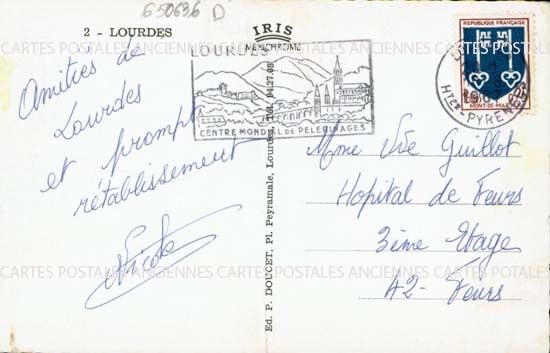 650636 D
2 - LOURDES
IRIS
MEXICHROME
LOURDES
CENTRE MONDIAL DE PELERINAGES
REPUBLIQUE FRANÇAISE
MONT-DE-MARSAN
HTES-PYRENEES
Amitiés de
Lourdes
et prompt
rétablissement
Nicole
Ed. P. DOUCET, Pl. Peyramale, Lourdes, Tél. 94.27.08
Mme Vve Guillot
Hopital de Feurs
3ème Etage
42 - Feurs
CARTES POSTALES ANCIENNES CARTES POSTALES ANCIENNES CARTES POSTALES
CARTES POSTALES ANCIENNES CARTES POSTALES ANCIENNES CARTES POSTALES